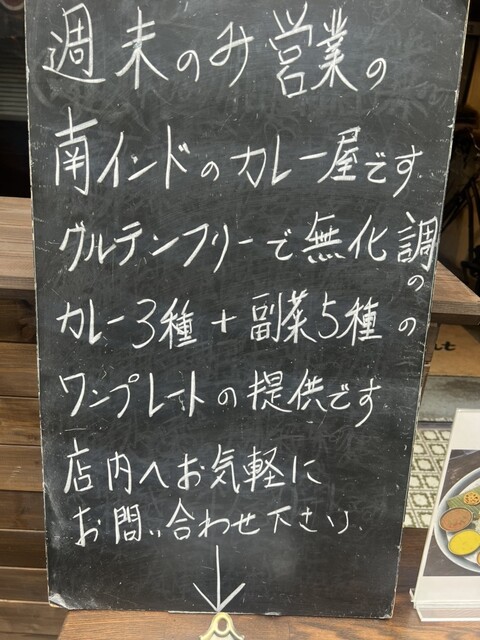 週末のみ営業の
南インドのカレー屋です
グルテンフリーで無化調の
カレー3種+副菜5種の
ワンプレートの提供です
店内へお気軽に
お問い合わせ下さい.